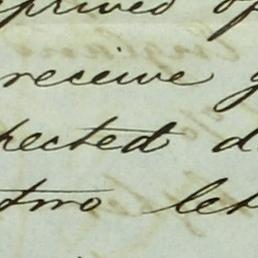 prived of
receive
pected d
two let